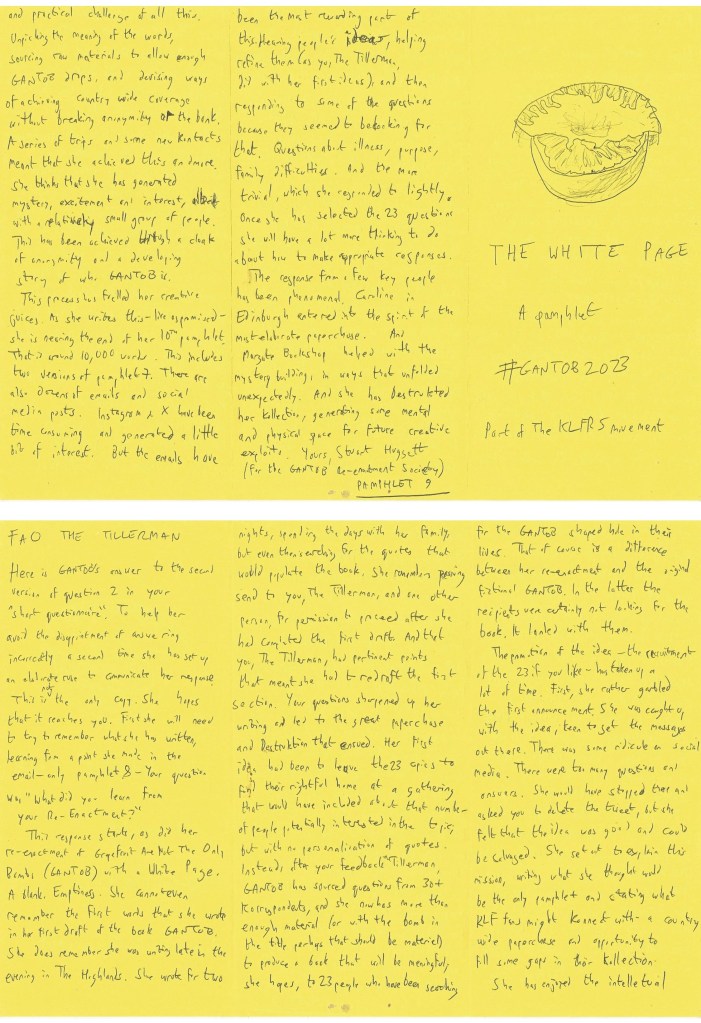 and practical challenge of all this.
Unpicking the meaning of the words,
sourcing raw materials to allow enough
GANTOB drops, and devising ways
of achieving country wide coverage
without breaking anonymity or the bank.
A series of trips and some new kontacts
meant that she achieved this and more.
She thinks that she has generated
mystery, excitement and interest, albeit
with a relatively small group of people.
This has been achieved through a cloak
of anonymity and a developing
story of who GANTOB is.
This process has fuelled her creative
juices. As she writes this - live and unpromised -
she is nearing the end of her 10th pamphlet.
That is around 10,000 words. This includes
two versions of pamphlet 7. There are
also dozens of emails and social
media posts. Instagram & X have been
time consuming and generated a little
bit of interest. But the emails have
been the most rewarding part of
this. Hearing people's ideas, helping
refine them (as you, The Tillerman,
did with her first ideas), and then
responding to some of the questions
because they seemed to be asking for
that. Questions about illness, purpose,
family difficulties. And the more
trivial, which she responded to lightly.
Once she has selected the 23 questions
she will have a lot more thinking to do
about how to make appropriate responses.
The response from a few key people
has been phenomenal. Caroline in
Edinburgh entered into the spirit of the
most elaborate paperchase. And
Margate Bookshop helped with the
mystery building, in ways that unfolded
unexpectedly. And she has destrukted
her kollection, generating some mental
and physical space for future creative
exploits. Yours, Stuart Huggett
(For the GANTOB re-enactment Society)
PAMPHLET 9
THE WHITE PAGE
A pamphlet
#GANTOB2023
Part of The KLFRS movement
FAO THE TILLERMAN
Here is GANTOB's answer to the second
version of question 2 in your
"short questionnaire". To help her
avoid the disappointment of answering
incorrectly a second time she has set up
an elaborate ruse to communicate her response
This is not the only copy. She hopes
that it reaches you. First she will need
to try to remember what she has written,
learning from a point she made in the
email-only pamphlet 8 - Your question
was "What did you learn from
your Re-Enactment?"
This response starts, as did her
re-enactment of Grapefruit Are Not The Only
Bombs (GANTOB) with a White Page.
A blank. Emptiness. She cannot even
remember the first words that she wrote
in her first draft of the book GANTOB.
She does remember she was writing late in the
evening in The Highlands. She wrote for two
nights, spending the days with her family,
but even then searching for the quotes that
would populate the book. She remembers passing
send to you, The Tillerman, and one other
person, for permission to proceed after she
had completed the first draft. And that
you, The Tillerman, had pertinent points
that meant she had to redraft the first
section. Your questions sharpened up her
writing and led to the great paperchase
and Destruktion that ensued. Her first
idea had been to leave the 23 copies to
find their rightful home at a gathering
that would have included about that number
of people potentially interested in the topic,
but with no personalisation of quotes.
Instead, after your feedback Tillerman,
GANTOB has sourced questions from 30+
Korrespondents, and she now has more than
enough material (or with the bomb in
the title perhaps that should be materiel)
to produce a book that will be meaningful,
she hopes, to 23 people who have been searching
for the GANTOB shaped hole in their
lives. That of course is a difference
between her re-enactment and the original
fictional GANTOB. In the latter the
recipients were certainly not looking for the
book. It landed with them.
The promotion of the idea - the recruitment
of the 23 if you like - has taken up a
lot of time. First, she rather garbled
the first announcement. She was caught up
with the idea, keen to get the message
out there. There was some ridicule on social
media. There were too many questions and
answers. She would have stopped there and
asked you to delete the tweet, but she
felt that the idea was good and could
be salvaged. She set out to explain this
mission, writing what she thought would
be the only pamphlet and stating what
KLF fans might konnect with - a country
wide paperchase and opportunity to
fill some gaps in their kollection.
She has enjoyed the intelletual